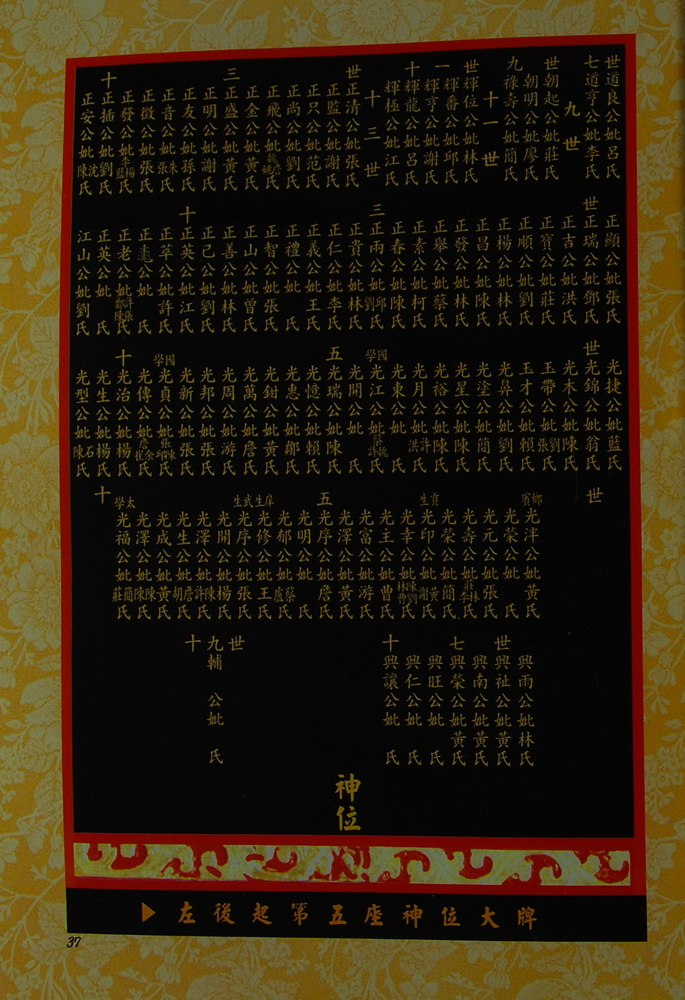 世道良公妣呂氏
七道亨公妣李氏
九世
世朝起公妣莊氏
朝明公妣廖氏
九祿壽公妣簡氏
十一世
世輝位公妣林氏
輝番公妣邱氏
一輝亨公妣謝氏
十輝龍公妣呂氏
輝極公妣江氏
十三世
世正清公妣張氏
正監公妣謝氏
正只公妣范氏
正尚公妣劉氏
正飛公妣氏
正金公妣黃氏
三正盛公妣黃氏
正明公妣謝氏
正友公妣孫氏
正音公妣朱張氏
正微公妣張氏
正發公妣楊李氏
十正插公妣劉氏
正安公妣沈陳氏
正顯公妣張氏
世正瑞公妣鄧氏
正吉公妣洪氏
正寶公妣莊氏
正順公妣劉氏
正楊公妣林氏
正昌公妣陳氏
正發公妣林氏
正舉公妣蔡氏
正素公妣柯氏
正春公妣陳氏
三正雨公妣邱劉氏
正貴公妣林氏
正仁公妣李氏
正義公妣王氏
正禮公妣氏
正智公妣張氏
正山公妣曾氏
正善公妣林氏
正己公妣劉氏
十正英公妣江氏
正萃公妣許氏
正公妣氏
正老公妣許張鄭陳氏
正英公妣氏
江山公妣劉氏
光捷公妣藍氏
世光錦公妣翁氏
光木公妣陳氏
玉帶公妣劉張氏
玉才公妣賴氏
光鼻公妣劉氏
光塗公妣簡氏
光星公妣陳氏
光裕公妣陳氏
光月公妣許洪氏
光東公妣氏
國學光江公妣魏許氏
光開公妣氏
五光瑞公妣陳氏
光憶公妣賴氏
光惠公妣鄔氏
光鉗公妣黃氏
光萬公妣詹氏
光周公妣游氏
光邦公妣張氏
光新公妣張氏
國學光貞公妣陳張邱氏
光傳公妣余氏
十光治公妣楊氏
光生公妣楊氏
光型公妣石陳氏
世
鄉賓光泮公妣黃氏
光榮公妣氏
光元公妣張氏
光壽公妣林莊李氏
光榮公妣簡氏
貢生光印公妣黃謝氏
光幸公妣陳劉林曹氏
光王公妣曹氏
光富公妣游氏
光澤公妣黃氏
五光序公妣詹氏
光明公妣氏
光郁公妣蔡盧氏
庠生光修公妣王氏
武生光序公妣張氏
光開公妣楊氏
光澤公妣陳許氏
光生公妣詹胡氏
光成公妣黃氏
光澤公妣陳陳氏
太學光福公妣簡莊氏
十
興雨公妣林氏
世興祉公妣黃氏
興南公妣黃氏
七興榮公妣黃氏
興旺公妣氏
興仁公妣氏
十興讓公妣氏
世
九輔公妣氏
十
神位
左後起第五座神位大牌
37